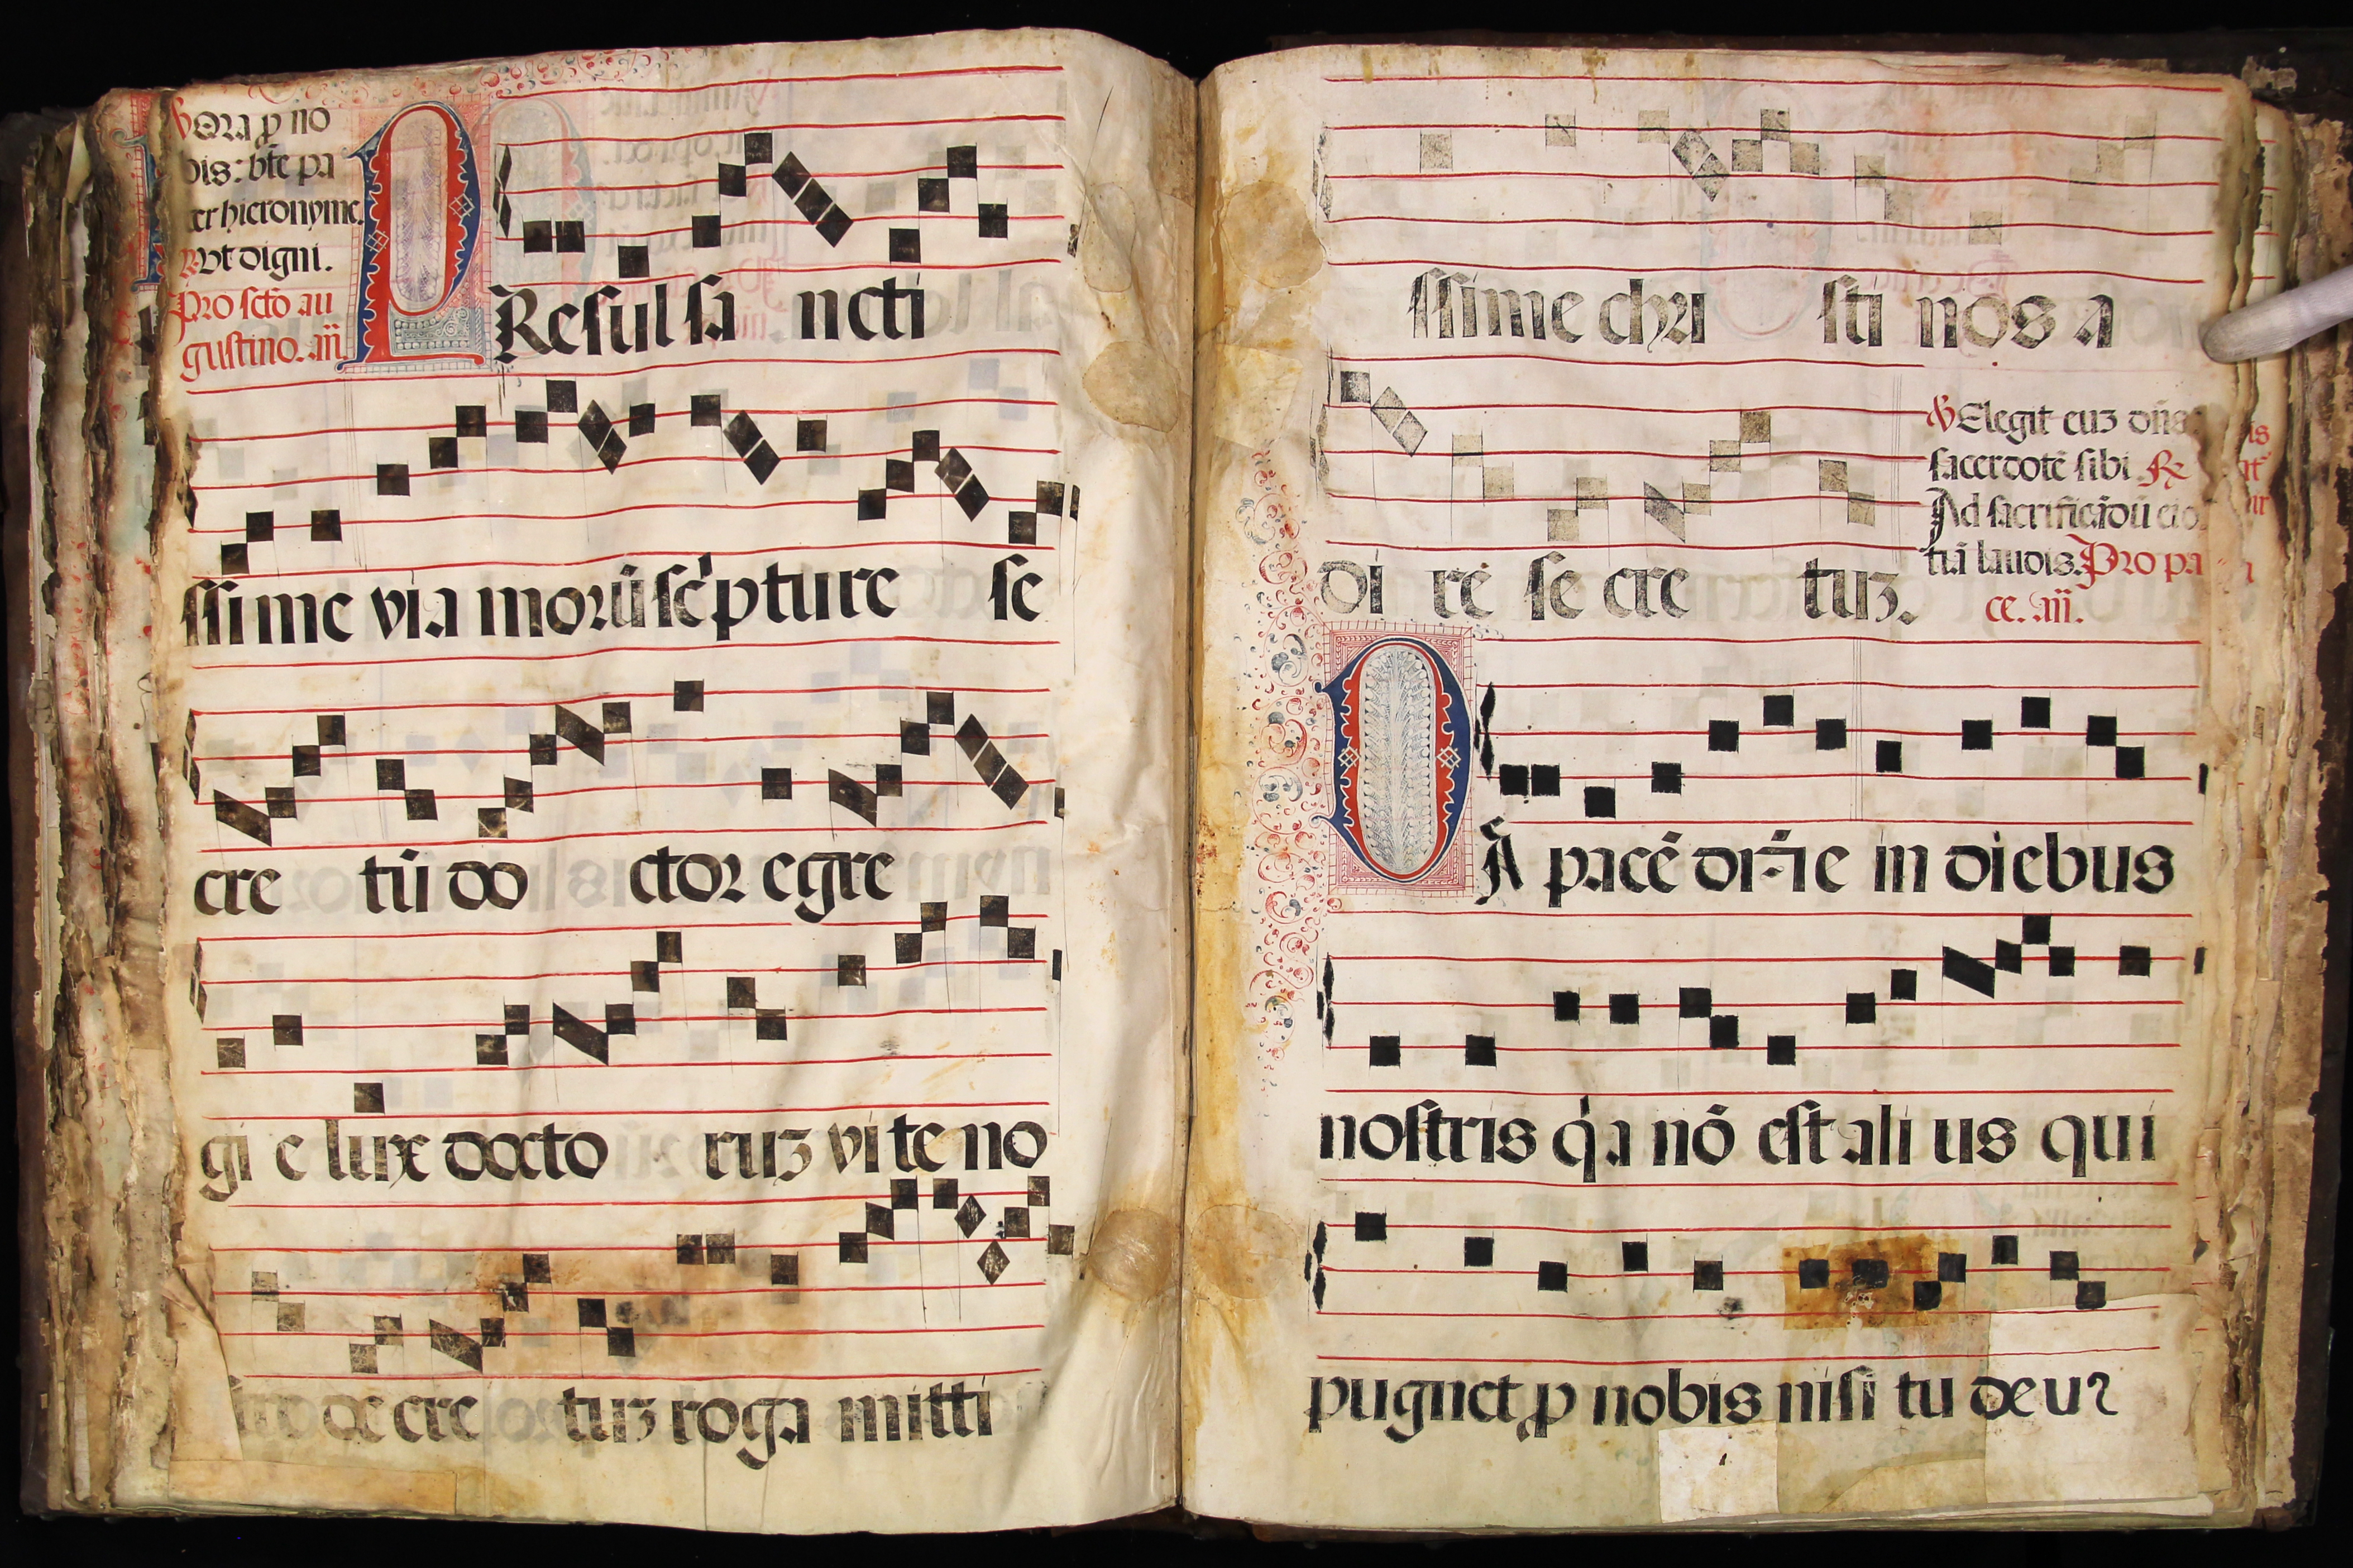 ℣ Ora ꝓ no
bis: bt̄e pa
ter hieronyme.
℟ Vt digni.
Pro sctō au
gustino. añ.
PResul sa ncti
ssime via morū sc̄pture se
cre tū do ctor egre
gi e lux docto ruz vite no
de cre tuz roga mitti
ssime chri sti nos a
℣ Elegit euz dn̄s
sacerdotē sibi ℟
Ad sacrificādū ei
di re se cre tuz.
tiā laudis. Pro pa
ce. añ.
DA pacē din̄e in diebus
nostris qͥa nō est ali us qui
pugnet ꝓ nobis nisi tu deus